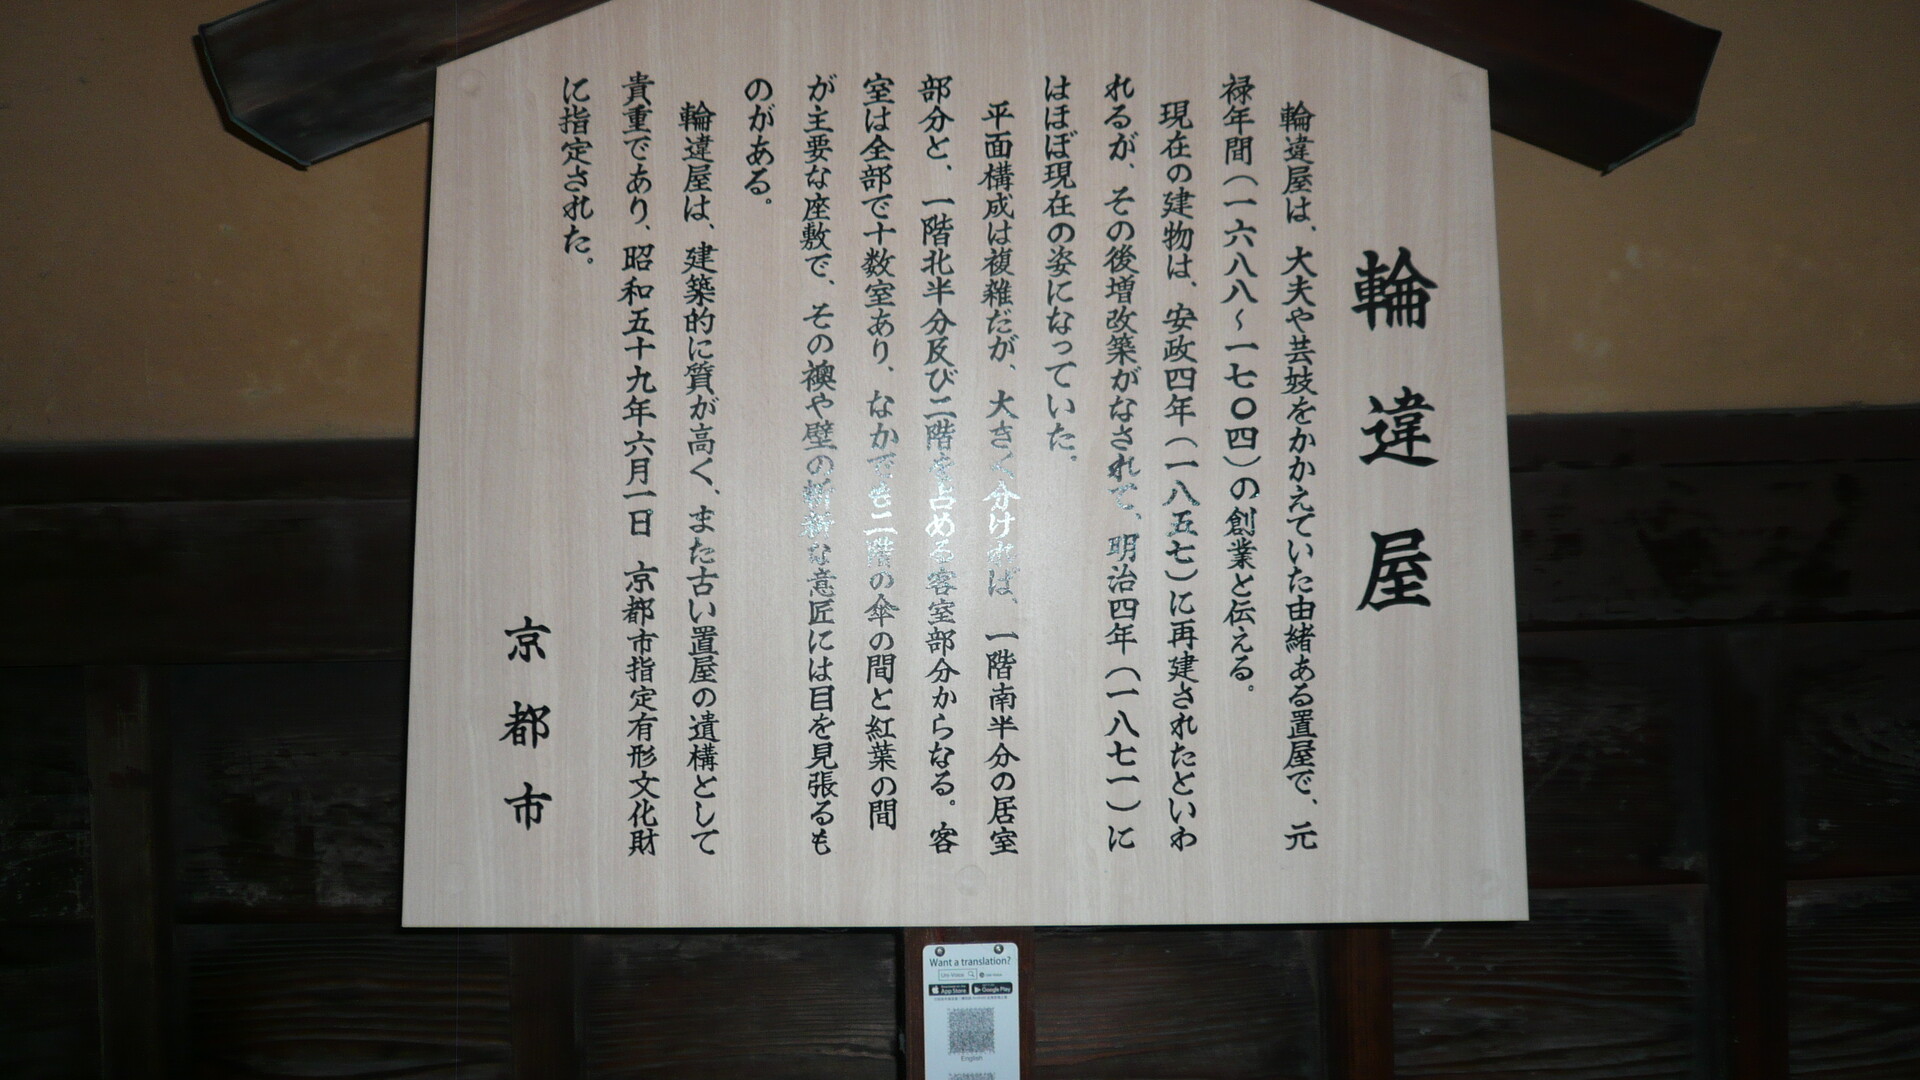 輪違屋
輪違屋は、大夫や芸妓をかかえていた由緒ある置屋で、元
禄年間(一六八八~一七〇四)の創業と伝える。
現在の建物は、安政四年(一八五七)に再建されたといわ
れるが、その後増改築がなされて、明治四年(一八七一)に
はほぼ現在の姿になっていた。
平面構成は複雑だが、大きく分ければ、一階南半分の居室
部分と、一階北半分及び二階を占める客室部分からなる。客
室は全部で十数室あり、なかでも二階の傘の間と紅葉の間
が主要な座敷で、その襖や壁の斬新な意匠には目を見張るも
のがある。
輪違屋は、建築的に質が高く、また古い置屋の遺構として
貴重であり、昭和五十九年六月一日 京都市指定有形文化財
に指定された。
京都市
Want a translation?
App Store
Google Play
English